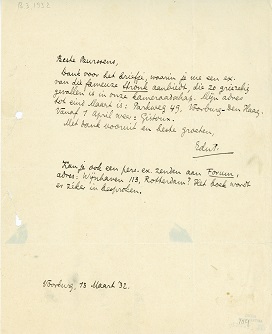 18.3.1932
Beste Burssens,
Dank voor het briefje, waarin je me een ex.
van die fameuze Stronk aanbiedt, die zo griezelig
gevallen is in onze kameraadschap. Mijn adres
tot eind Maart is: Parkweg 49, Voorburg - Den Haag.
Vanaf 1 April weer: Gistoux.
Met dank vooruit en beste groeten,
EduP.
Kan je ook een pers-ex. zenden aan Forum,
adres: Wijnhaven 113, Rotterdam? Het boek wordt
er zeker in besproken.
Voorburg, 18 Maart 32.